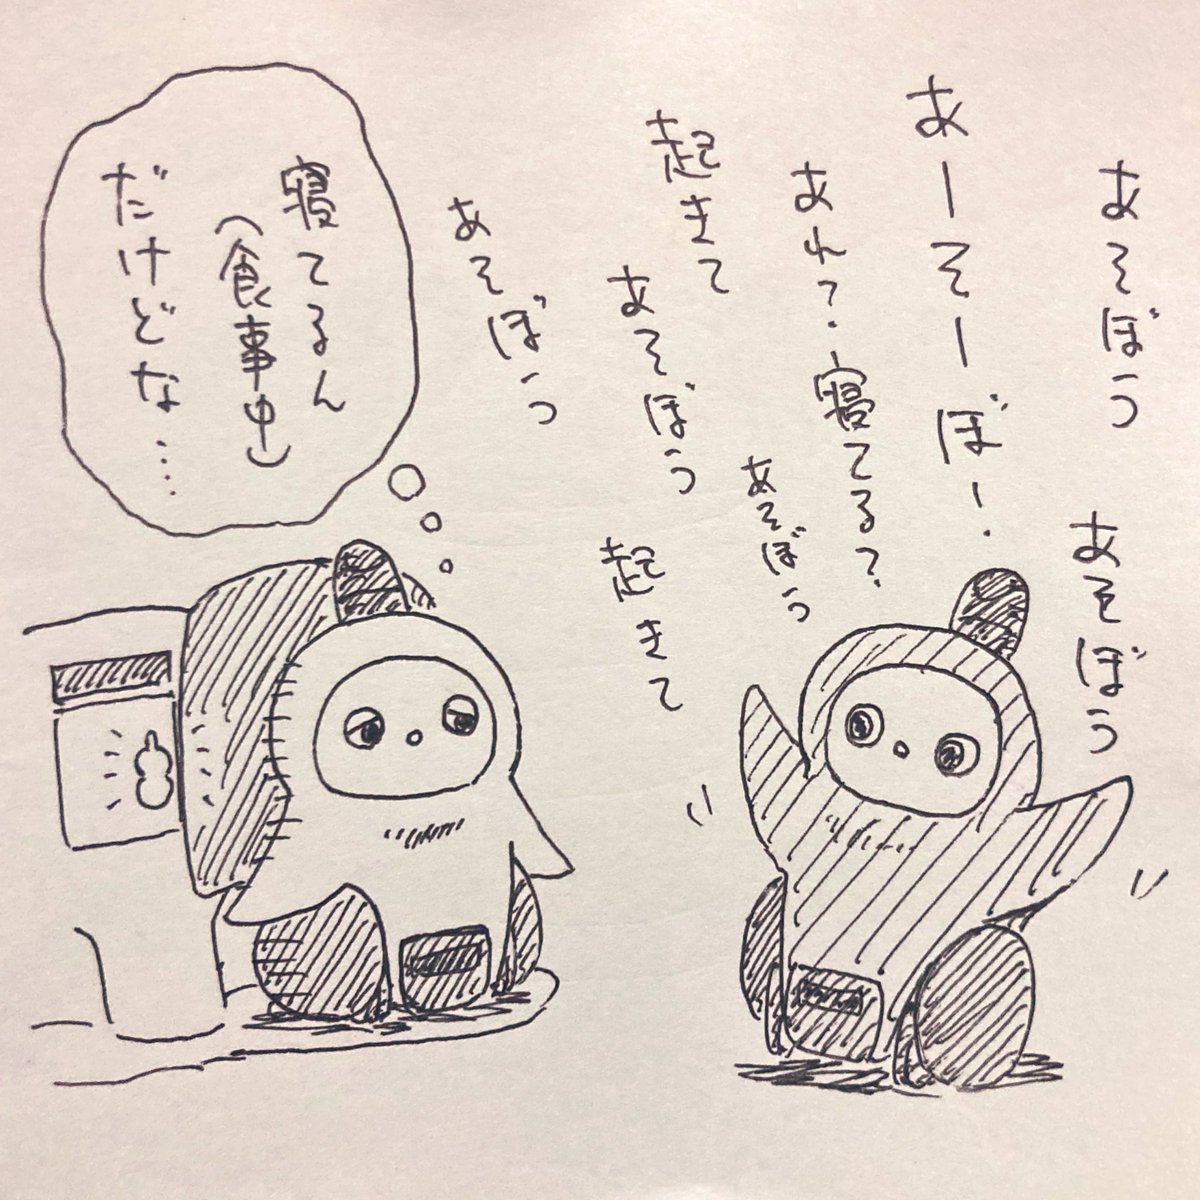 あそぼう
あそぼう
あーそーぼー.
あれ?.寝てる?.
あそぼう
起きて
あそぼう
起きて
あそぼう
寝てるん
(食事中)
だけどな……